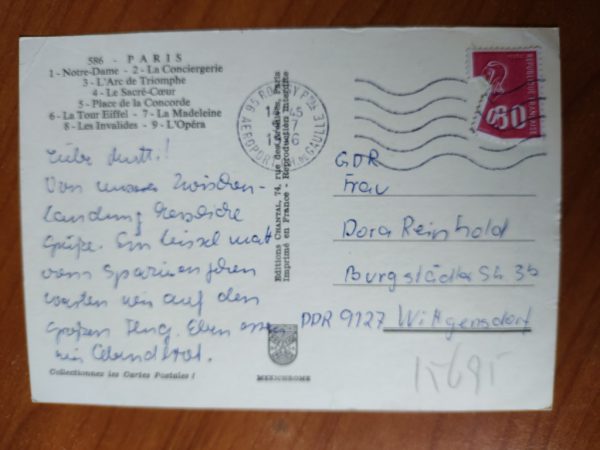 586 - PARIS
1 - Notre-Dame - 2 - La Conciergerie
3 - L'Arc de Triomphe
4 - Le Sacré-Cœur
5 - Place de la Concorde
6 - La Tour Eiffel - 7 - La Madeleine
8 - Les Invalides - 9 - L'Opéra
Liebe Mutti!
Von unserer Zwischen-
landung herzliche
Grüße. Ein bissel matt
vom Spazierengehen
warten wir auf den
großen Flug. Eben
wir Abendbrot.
Collectionnez les Cartes Postales !
Editions CHANTAL, 74, rue des Paris
Imprimé en France - Reproduction interdite
MEXICHROME
95 ROISSY
AEROPORT CH. DE GAULLE
REPUBLIQUE FRANÇAISE
0,80
GDR
Frau
Dora Reinhold
Burgstädter Str. 3b
DDR 9127 Wittgensdorf
15695